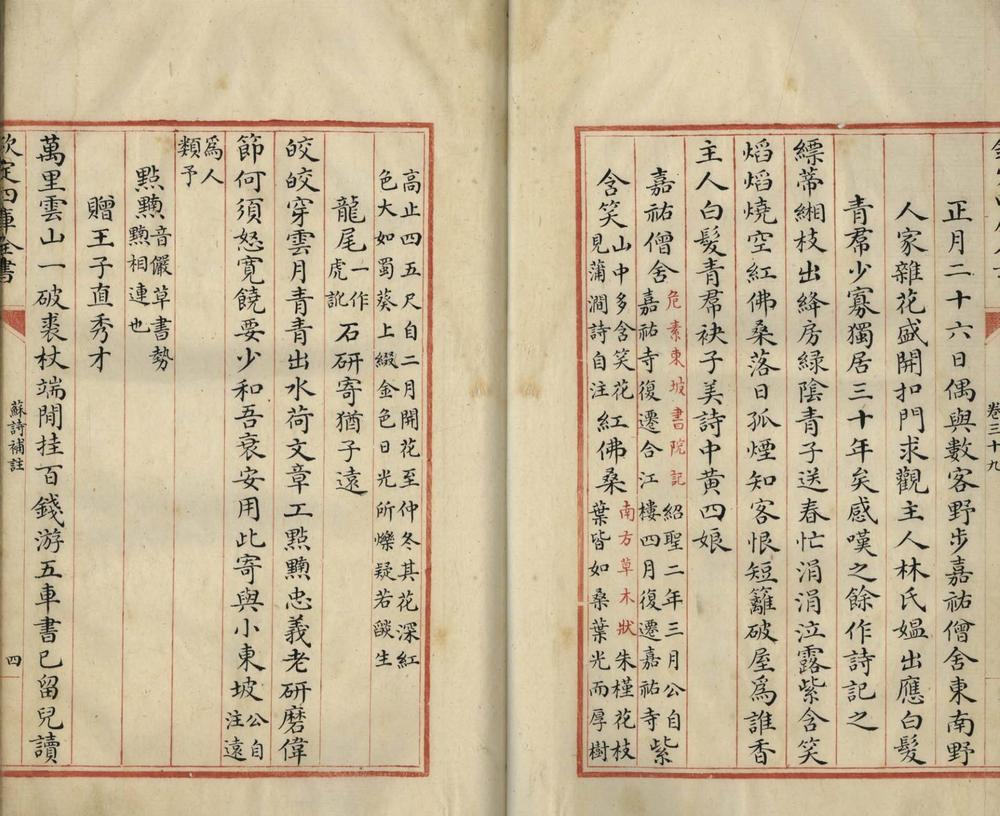 卷三十九
正月二十六日偶與數客野步嘉祐僧舍東南野
人家雜花盛開扣門求觀主人林氏媼出應白髮
青帬少寡獨居三十年矣感嘆之餘作詩記之
縹蒂緗枝出絳房綠陰青子送春忙涓涓泣露紫含笑
焰焰燒空紅佛桑落日孤煙知客恨短籬破屋為誰香
主人白髮青帬袂子美詩中黃四娘
嘉祐僧舍危素東坡書院記紹聖二年三月公自嘉祐寺復遷合江樓四月復遷嘉祐寺紫
含笑山中多含笑花見蒲澗詩自注紅佛桑南方草木狀朱槿花枝葉皆如桑葉光而厚樹
高止四五尺自二月開花至仲冬其花深紅
色大如蜀葵上綴金色日光所爍疑若燄生
龍尾一作虎訛石研寄猶子遠
皎皎穿雲月青青出水荷文章工點黵忠義老研磨偉
節何須怒寬饒要少和吾衰安用此寄與小東坡公自注遠
為人類予
點黵音儼草書勢黵相連也
贈王子直秀才
萬里雲山一破裘杖端閒挂百錢游五車書已留兒讀
欽定四庫全書
蘇詩補註
四